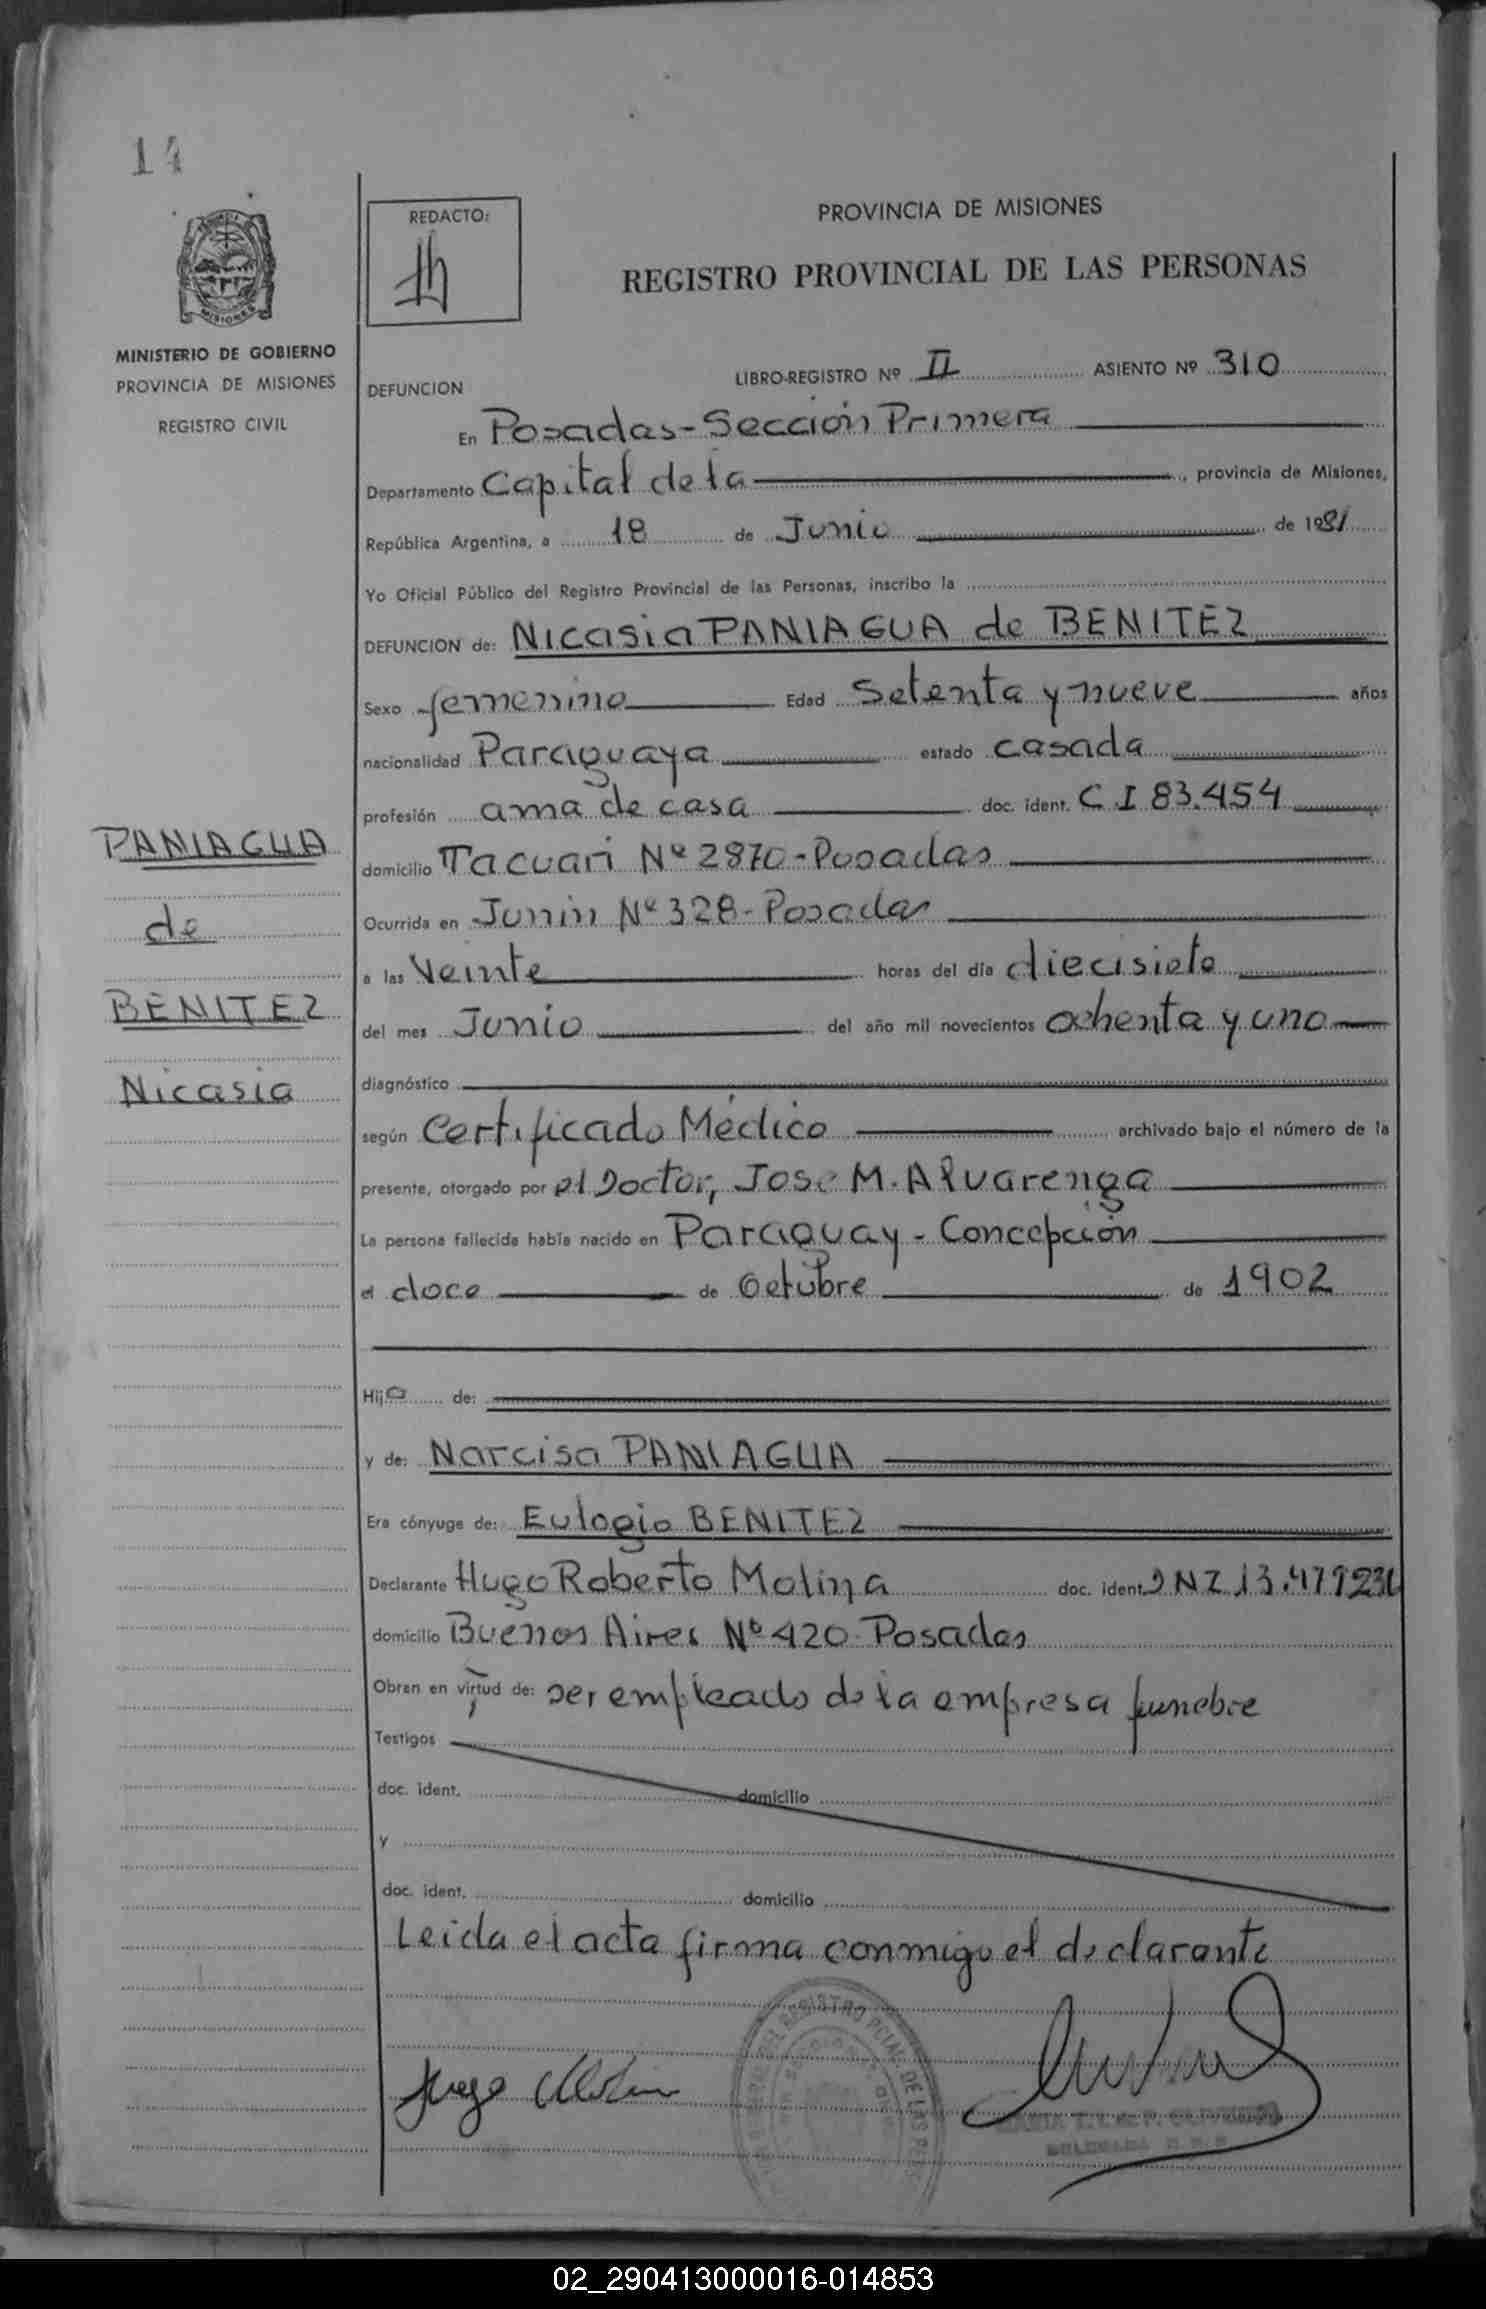 14
REDACTO:
MISIONES
MINISTERIO DE GOBIERNO
PROVINCIA DE MISIONES
REGISTRO CIVIL
PROVINCIA DE MISIONES
REGISTRO PROVINCIAL DE LAS PERSONAS
DEFUNCION LIBRO-REGISTRO Nº II ASIENTO Nº 310
En Posadas-Sección Primera
Departamento Capital de la, provincia de Misiones,
República Argentina, a 18 de Junio de 1981
Yo Oficial Público del Registro Provincial de las Personas, inscribo la
DEFUNCION de: Nicasia PANIAGUA de BENITEZ
Sexo femenino Edad Setenta y nueve años
nacionalidad Paraguaya estado casada
profesión ama de casa doc. ident. C I 83.454
domicilio Tacuari Nº 2870-Posadas
Ocurrida en Junin Nº 328-Posadas
a las Veinte horas del día diecisiete
del mes Junio del año mil novecientos ochenta y uno
diagnóstico
según Certificado Médico archivado bajo el número de la
presente, otorgado por el Doctor, Jose M. Alvarenga
La persona fallecida había nacido en Paraguay - Concepción
el doce de Octubre de 1902
Hija de:
y de: Narcisa PANIAGUA
Era cónyuge de: Eulogio BENITEZ
Declarante Hugo Roberto Molina doc. ident. DNI 13.
domicilio Buenos Aires Nº 420 Posadas
Obran en virtud de: ser empleado de la empresa funebre
Testigos
doc. ident. domicilio
y
doc. ident. domicilio
Leida el acta firma conmigo el declarante
Hugo Molina
PANIAGUA
de
BENITEZ
Nicasia
02_290413000016-014853